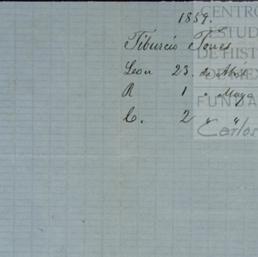 1859.
Tiburcio Torres
Leon 23. de Abril
R 1 " Mayo
C. 2 " "
CENTRO
ESTUD
DE HIST
DE MEX
FUNDA
Carlos